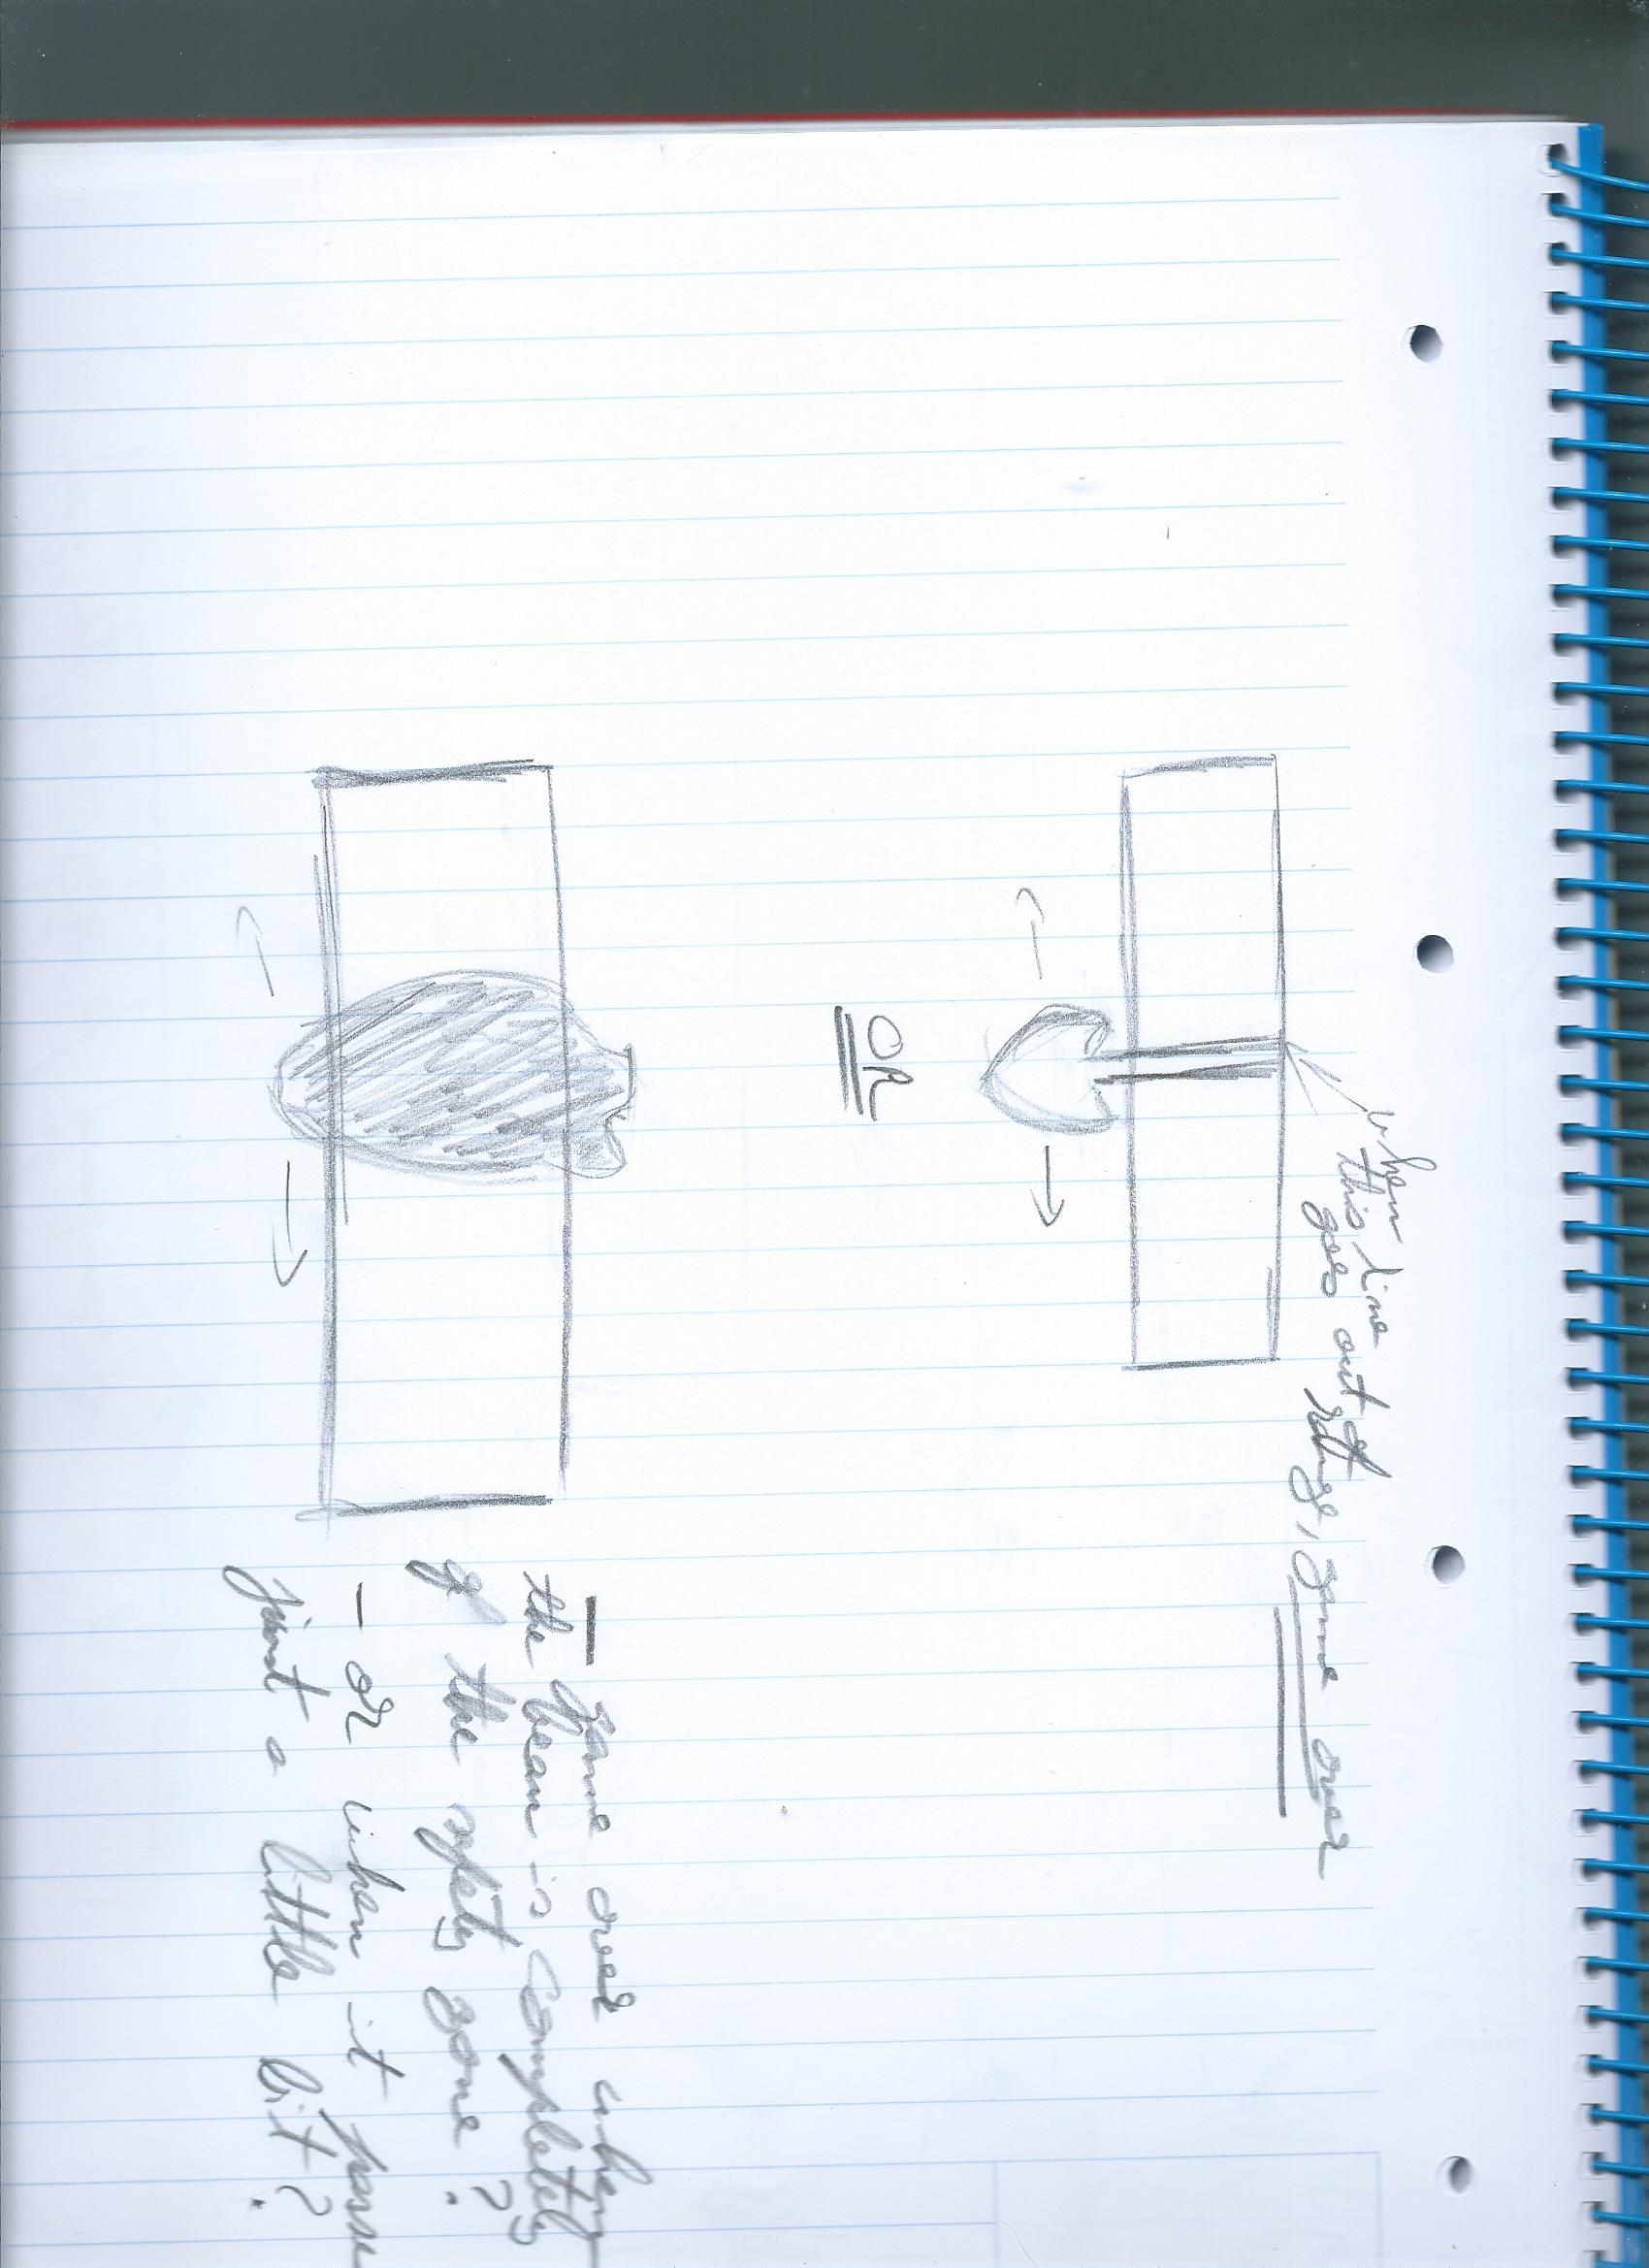 when
this line
goes out of
range, game over
OR
- game over when
the bean is completely
of the safety gone?
- or when it passe
just a little bit?